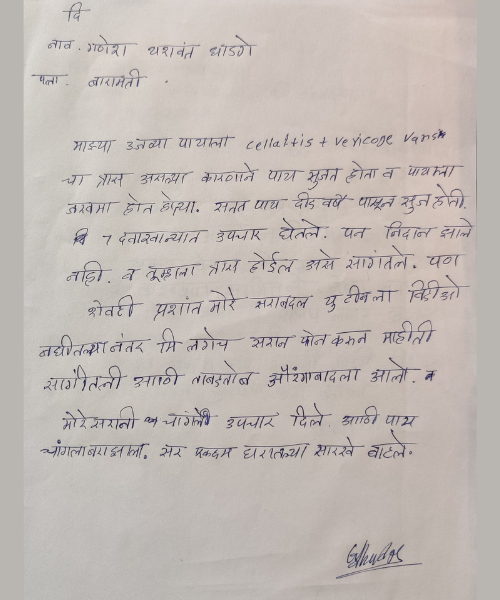 दि
नाव. गणेश यशवंत धाडगे
पत्ता. बारामती .
माझ्या उजव्या पायाला cellaltis + vericoge vans
चा त्रास असल्या कारणाने पाय सुजत होता व पायाला
जखमा होत होत्या. सतत पाय दीड वर्षे पासून सुज होती.
7 दवाखान्यात उपचार घेतले. पन निदान झाले
नाही. व तुम्हाला त्रास होईल असे सांगतले. पण
शेवटी प्रशांत मोरे सरानबदल यु टीबला विडीओ
बघीतल्या नंतर मि लगेच सरान फोन करून माहीती
सांगीतली आणि ताबडतोब औरंगाबादला आलो.
मोरे सरानी चांगले उपचार दिले. आणि पाय
चांगला बरा झाला. सर एकदम घरातल्या सारखे वाटले.